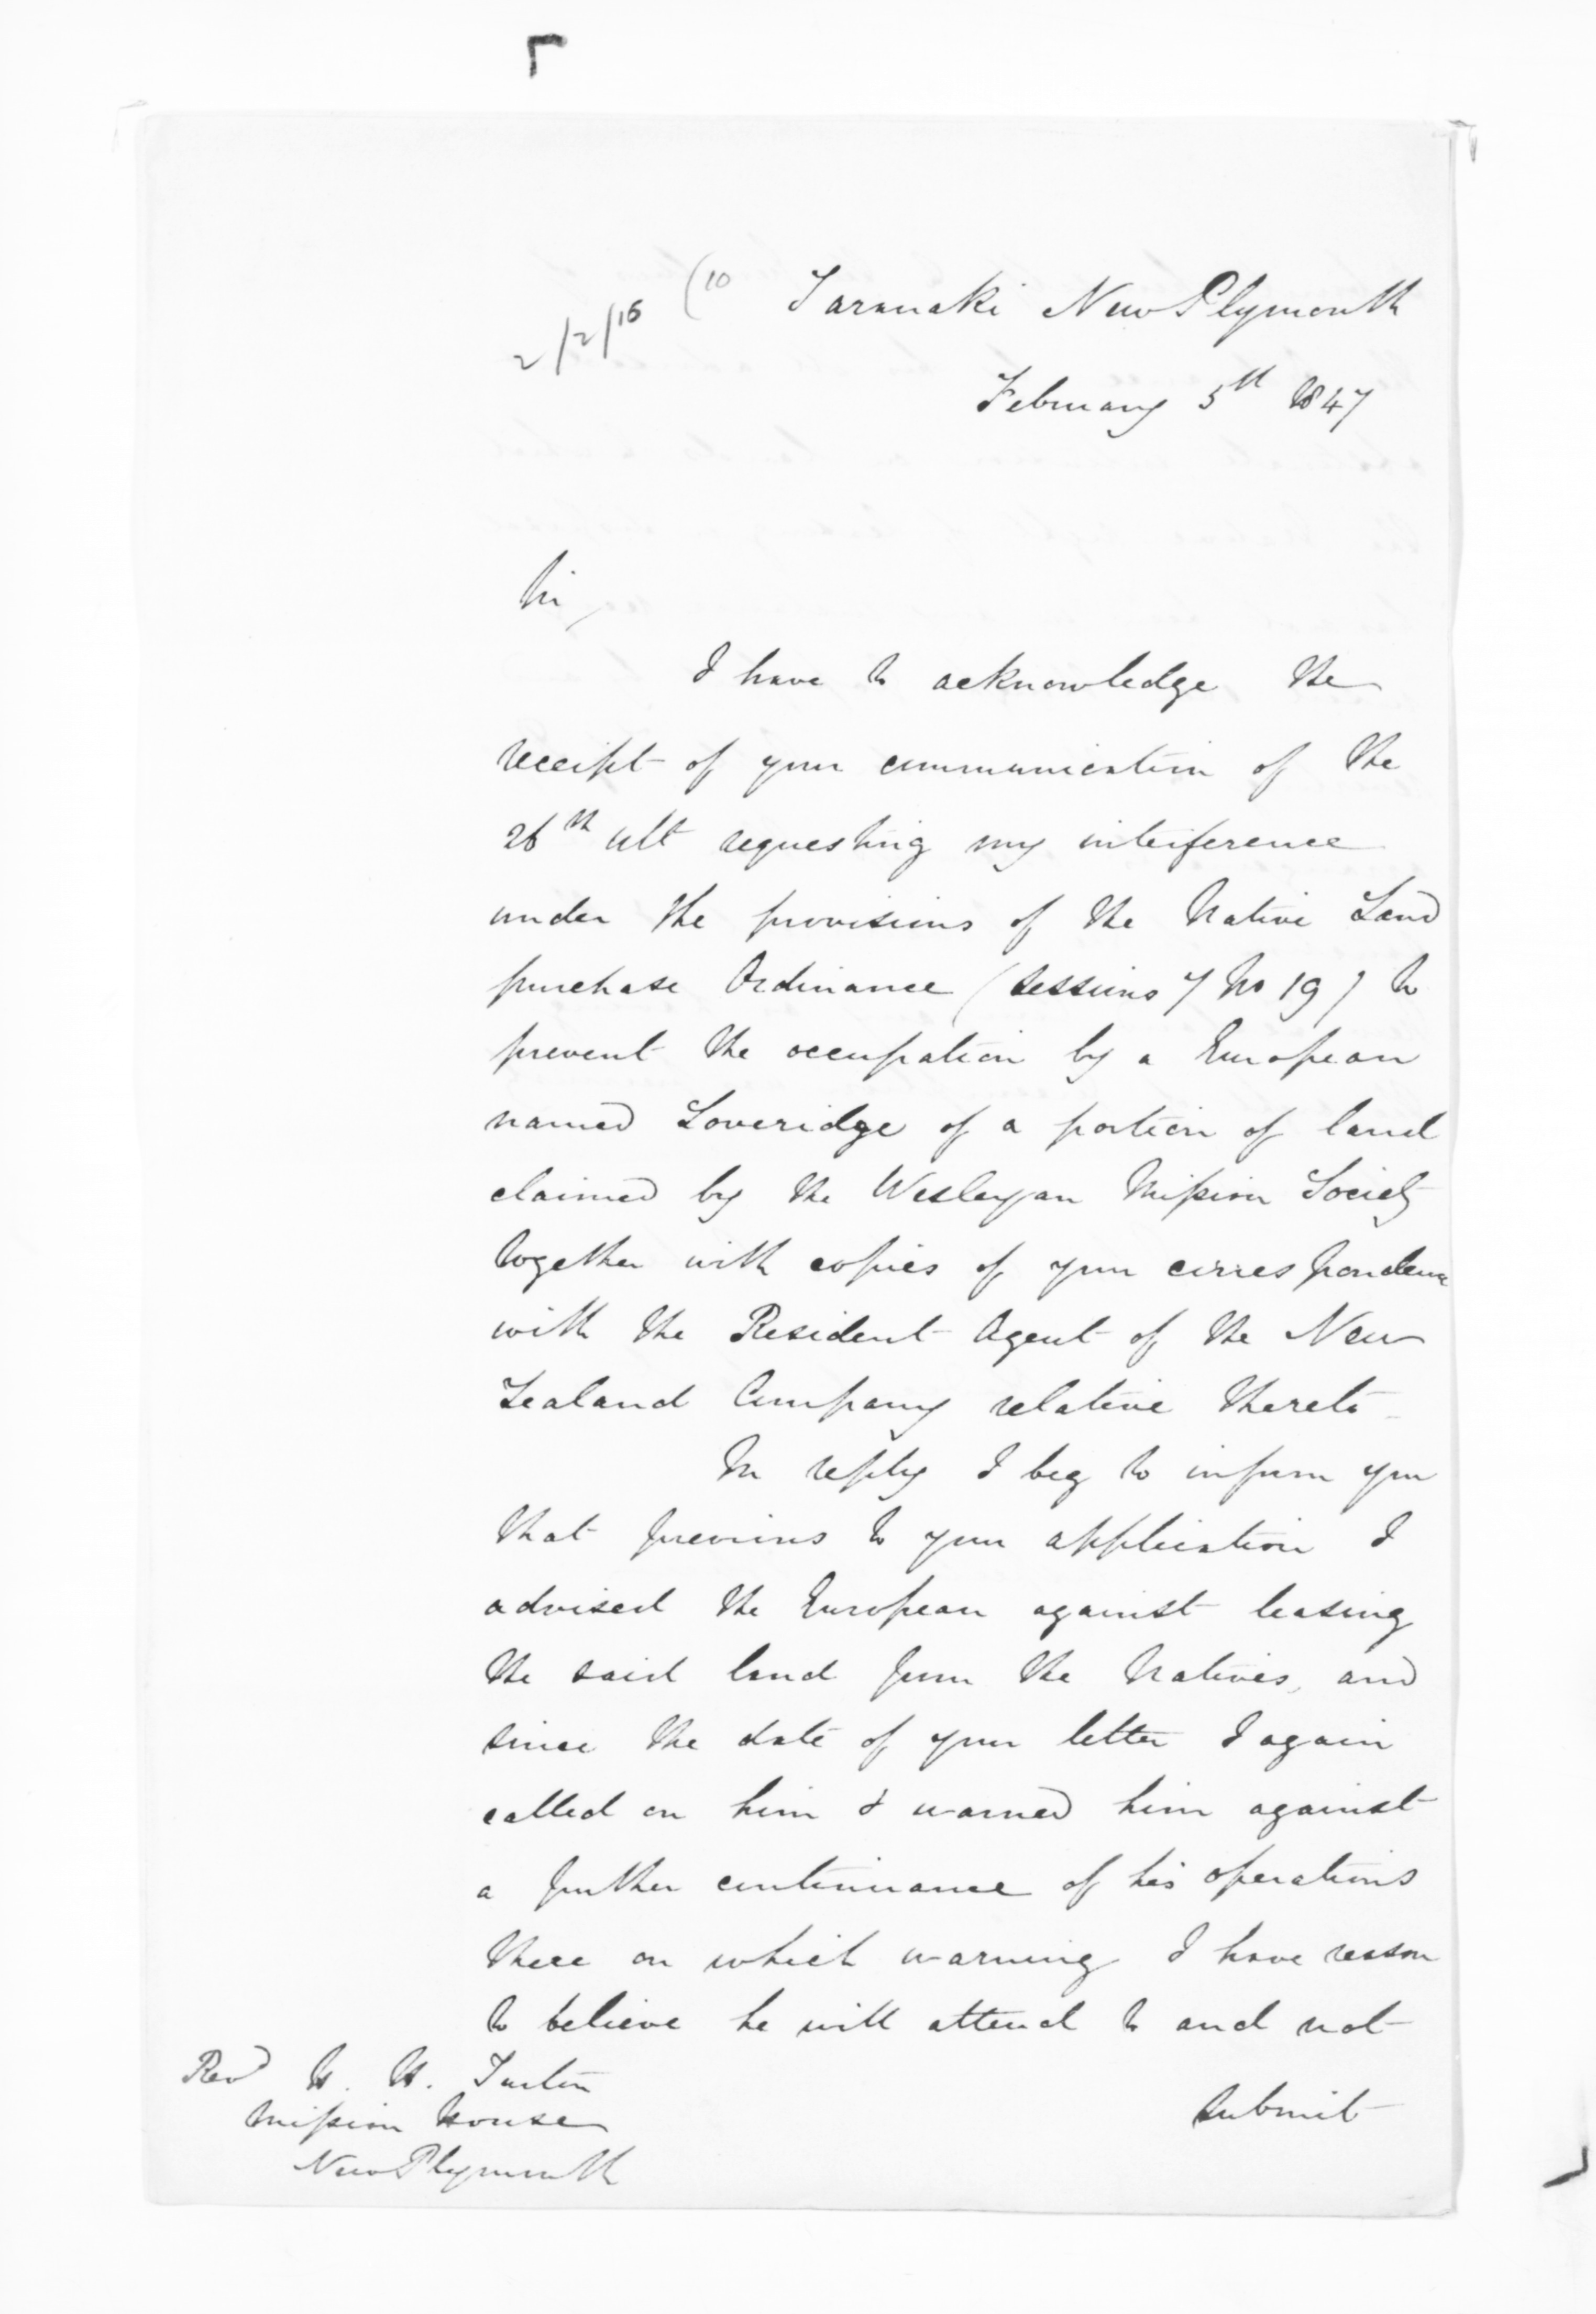 2/2/16 (10 Taranaki New Plymouth
February 5th 1847
Sir,
I have to acknowledge the
receipt of your communication of the
26th ult requesting my interference
under the provisions of the Native Land
purchase Ordinance (sessions 7 No 19) to
prevent the occupation by a European
named Loveridge of a portion of land
claimed by the Wesleyan Mission Society
together with copies of your correspondence
with the Resident Agent of the New
Zealand Company relative thereto
In reply I beg to inform you
that previous to your application I
advised the European against leasing
the said land from the Natives, and
since the date of your letter I again
called on him & warned him against
a further continuance of his operations
there on which warning I have reason
to believe he will attend to and not
submit
Revd H. H. Turton
Mission House
New Plymouth